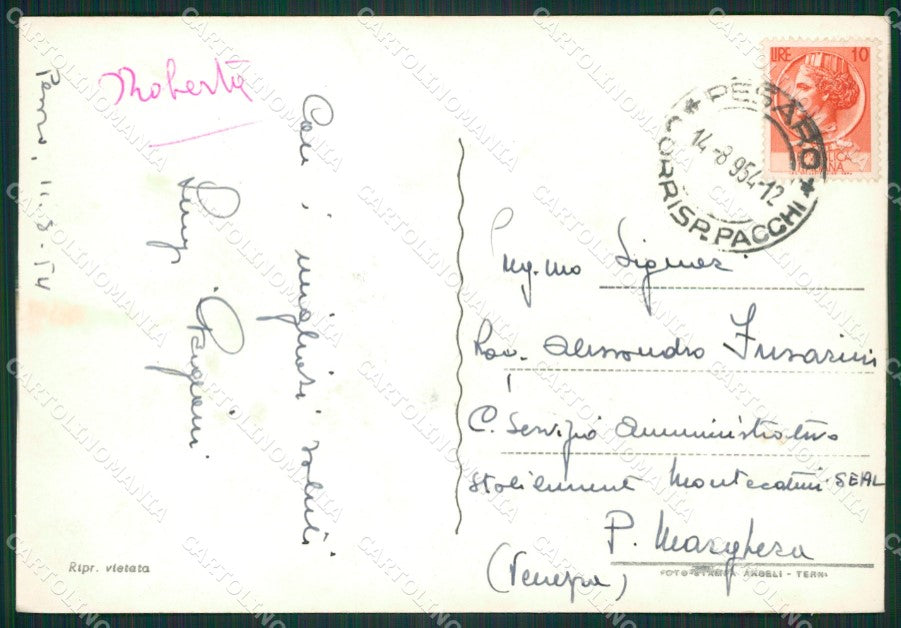 Roberta
Pesaro, 11-8-54
Con i migliori saluti
Luigi
LIRE 10
PESARO
14-8-954-12
CORRISP. PACCHI
Ing.mo Signor
Rav. Alessandro Fusarini
C. Servizio Amministrativo
Stabilimento Montecatini-SEAL
P. Marghera
(Venezia)
Ripr. vietata
FOTO-STAMPA ANGELI - TERNI
CARTOLINOMANIA